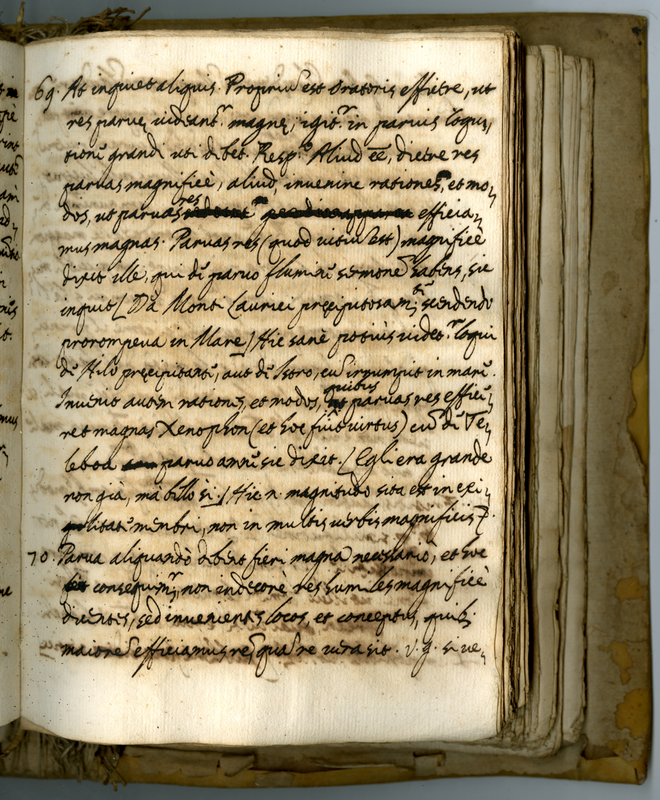 69. At inquiet aliquis. Propriũ est Oratoris efficere, ut
res parue uideant.r magne; igit.r in paruis loqu,
tioni grandi uti debet. Resp.o Aliud eẽ, dicere res
paruas magnificè, aliud, inuenire rationes, et mo,
dos, ut paruas res efficia,
mus magnas. Paruas res (quod uitiũ est) magnificè
dixit ille, qui dũ paruo flumini sermonẽ habens, sic
inquit / Da Monti scendendo
prorompeua in Mare / Hic sanè potiùs uidet.r loqui
dẽ Nilo precipitanti, aut dẽ Istro, cũ irrumpit in mari.
Inuenit autem rationes, et modos, quibus paruas res effice,
ret magnas Xenophon (et hoc fuit uirtus) cũ dẽ Te,
leboa paruo amni sic dixit. / Egli era grande
non già, mà bello sì / Hic n. magnitudo sita est in exi,
litate membri, non in multis uerbis magnificis
70. Parua aliquandò debent fieri magna necessario, et hoc
consequim.r, non indecorè res humiles magnificè
dicentes, sed inuenientes locos, et conceptus, quib;
maiorẽ efficiamus rẽ, quã re uera sit. v.g. si ue,